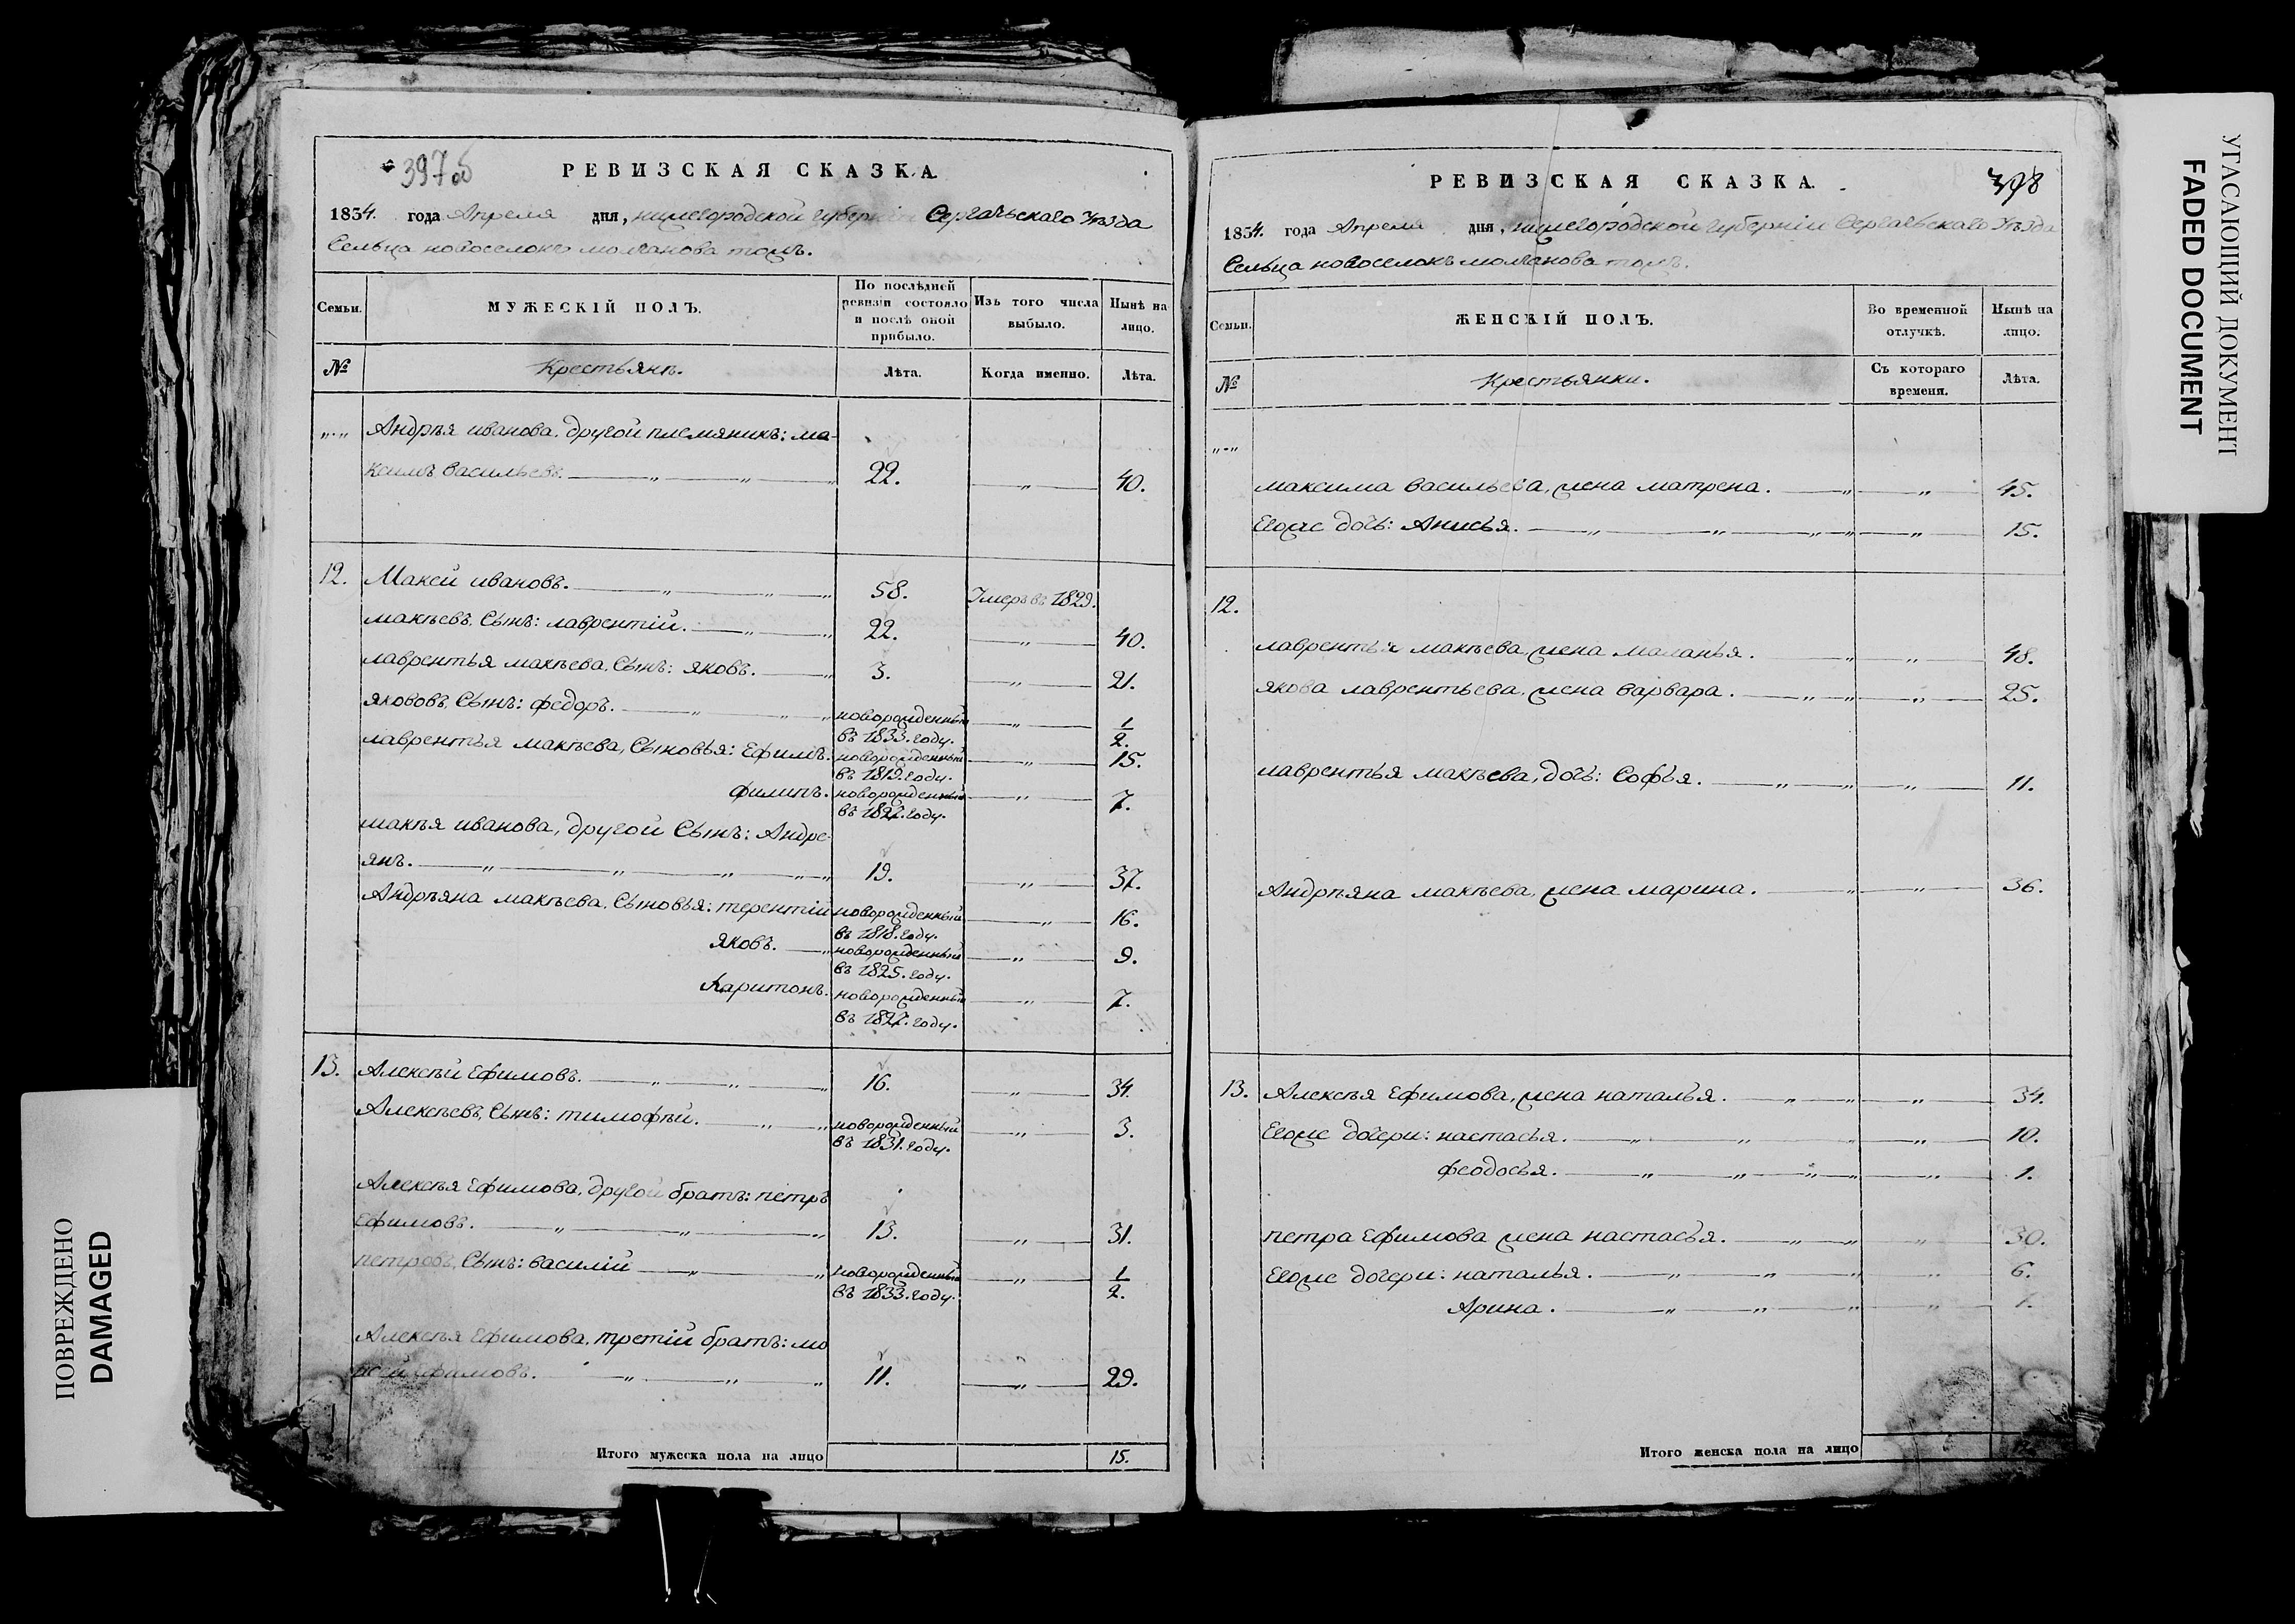 397 об
РЕВИЗСКАЯ СКАЗКА.
1834. года Апреля дня, нижегородской губерніи Сергачьскаго Уѣзда
Сельца новоселокъ молчанова тожъ.
Семьи. МУЖЕСКІЙ ПОЛЪ. По послѣдней ревизіи состояло и послѣ оной прибыло. Изъ того числа выбыло. Нынѣ на лицо.
№ Крестьянъ. Лѣта. Когда именно. Лѣта.
„-„ Андрѣя иванова. другой племяникъ: ма-
ксимъ васильевъ. 22. „ 40.
12. Макей ивановъ. 58. Умеръ въ 1829.
макѣевъ, Сынъ: лаврентій. 22. „ 40.
лаврентья макѣева, Сынъ: яковъ. 3. „ 21.
яковъ Сынъ: федоръ. новорожденный въ 1833. году. „ 1/2.
лаврентья макѣева, Сыновья: Ефимъ. новорожденный въ 1819. году. „ 15.
филипъ. новорожденный въ 1827. году. „ 7.
макѣя иванова, другой Сынъ: Андре-
янъ. 19. „ 37.
Андрѣяна макѣева, Сыновья: терентій новорожденный въ 1818. году. „ 16.
яковъ. новорожденный въ 1825. году. „ 9.
Харитонъ. новорожденный въ 1827. году. „ 7.
13. Алексѣй Ефимовъ. 16. „ 34.
Алексѣевъ, Сынъ: тимофѣй. новорожденный въ 1831. году. „ 3.
Алексѣя Ефимова, другой братъ: петръ
Ефимовъ. 13. „ 31.
петровъ, Сынъ: василій новорожденный въ 1833. году. „ 1/2.
Алексѣя Ефимова, третій братъ: мо
ефимовъ. 11. „ 29.
Итого мужеска пола на лицо 15.
398
РЕВИЗСКАЯ СКАЗКА.
1834. года Апреля дня, нижегородской губерніи Сергачьскаго Уѣзда
Сельца новоселокъ молчанова тожъ.
Семьи. ЖЕНСКІЙ ПОЛЪ. Во временной отлучкѣ. Нынѣ на лицо.
№ Крестьянки. Съ котораго времени. Лѣта.
„-„
максима васильева, жена матрена. „ 45.
Егоже дочь: Анисья. „ 15.
12.
лаврентья макѣева, жена маланья. „ 48.
якова лаврентьева, жена варвара. „ 25.
лаврентья макѣева, дочь: Софья. „ 11.
Андрѣяна макѣева, жена марина. „ 36.
13. Алексѣя Ефимова, жена наталья. „ 34.
Егоже дочери: настасья. „ 10.
феодосья. „ 1.
петра Ефимова жена настасья. „ 30.
Егоже дочери: наталья. „ 6.
Арина. „ 1.
Итого женска пола на лицо
УГАСАЮЩИЙ ДОКУМЕНТ
FADED DOCUMENT
ПОВРЕЖДЕНО
DAMAGED